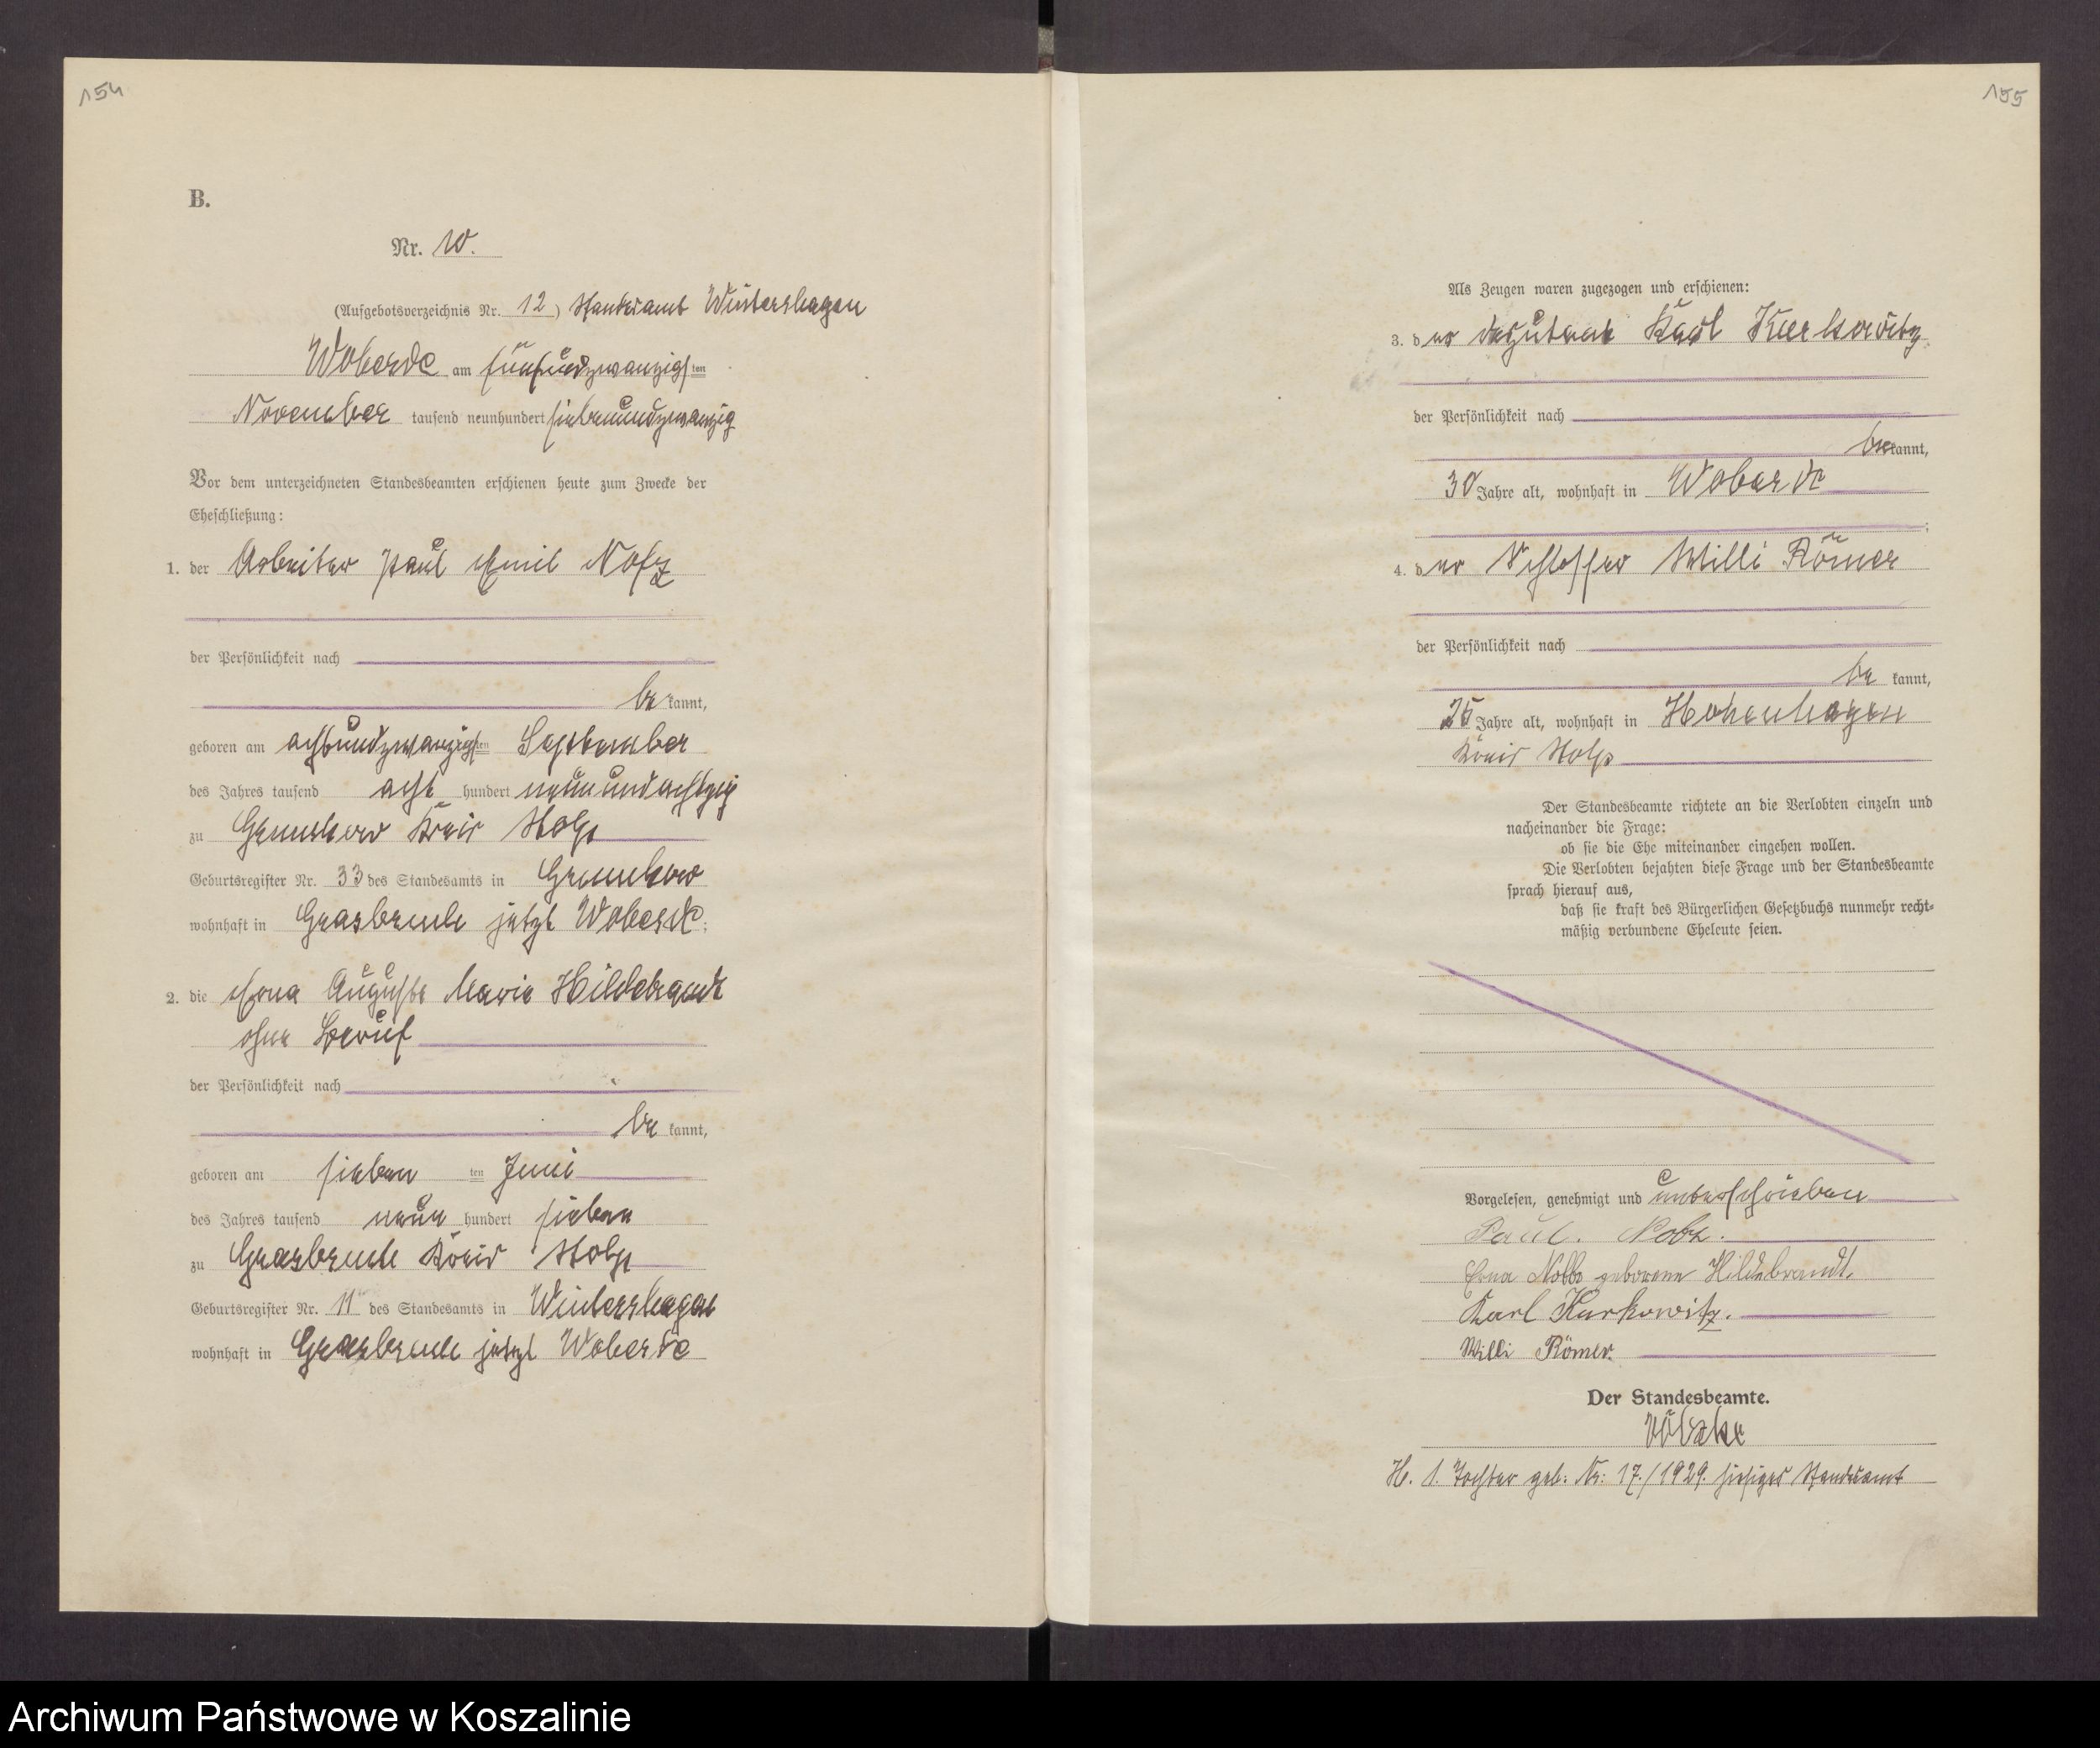 154
B.
Nr. 10.
(Aufgebotsverzeichnis Nr. 12) Standesamt Wintershagen
Woberde am fünfundzwanzigsten
November tausend neunhundert siebenundzwanzig
Vor dem unterzeichneten Standesbeamten erschienen heute zum Zwecke der
Eheschließung:
1. der Arbeiter Paul Emil
der Persönlichkeit nach
be kannt,
geboren am achtundzwanzigsten September
des Jahres tausend acht hundert neunundachtzig
zu Kreis Stolp
Geburtsregister Nr. 33 des Standesamts in
wohnhaft in jetzt Woberde;
2. die Erna Auguste Marie Hildebrandt
ohne Beruf
der Persönlichkeit nach
be kannt,
geboren am sieben ten Juni
des Jahres tausend neun hundert sieben
zu Kreis Stolp
Geburtsregister Nr. 11 des Standesamts in Wintershagen
wohnhaft in jetzt Woberde
155
Als Zeugen waren zugezogen und erschienen:
3. der Deputant Karl Kurkowitz
der Persönlichkeit nach
bekannt,
30 Jahre alt, wohnhaft in Woberde
;
4. der Schlosser Willi Römer
der Persönlichkeit nach
be kannt,
Jahre alt, wohnhaft in Hohenhagen
Kreis Stolp
Der Standesbeamte richtete an die Verlobten einzeln und
nacheinander die Frage:
ob sie die Ehe miteinander eingehen wollen.
Die Verlobten bejahten diese Frage und der Standesbeamte
sprach hierauf aus,
daß sie kraft des Bürgerlichen Gesetzbuchs nunmehr recht-
mäßig verbundene Eheleute seien.
Vorgelesen, genehmigt und unterschrieben
Paul.
Erna geborene Hildebrandt.
Karl Kurkowitz.
Willi Römer.
Der Standesbeamte.
Völzke
H. 1. Tochter geb: Nr: 17./1929. hiesiges Standesamt
Archiwum Państwowe w Koszalinie